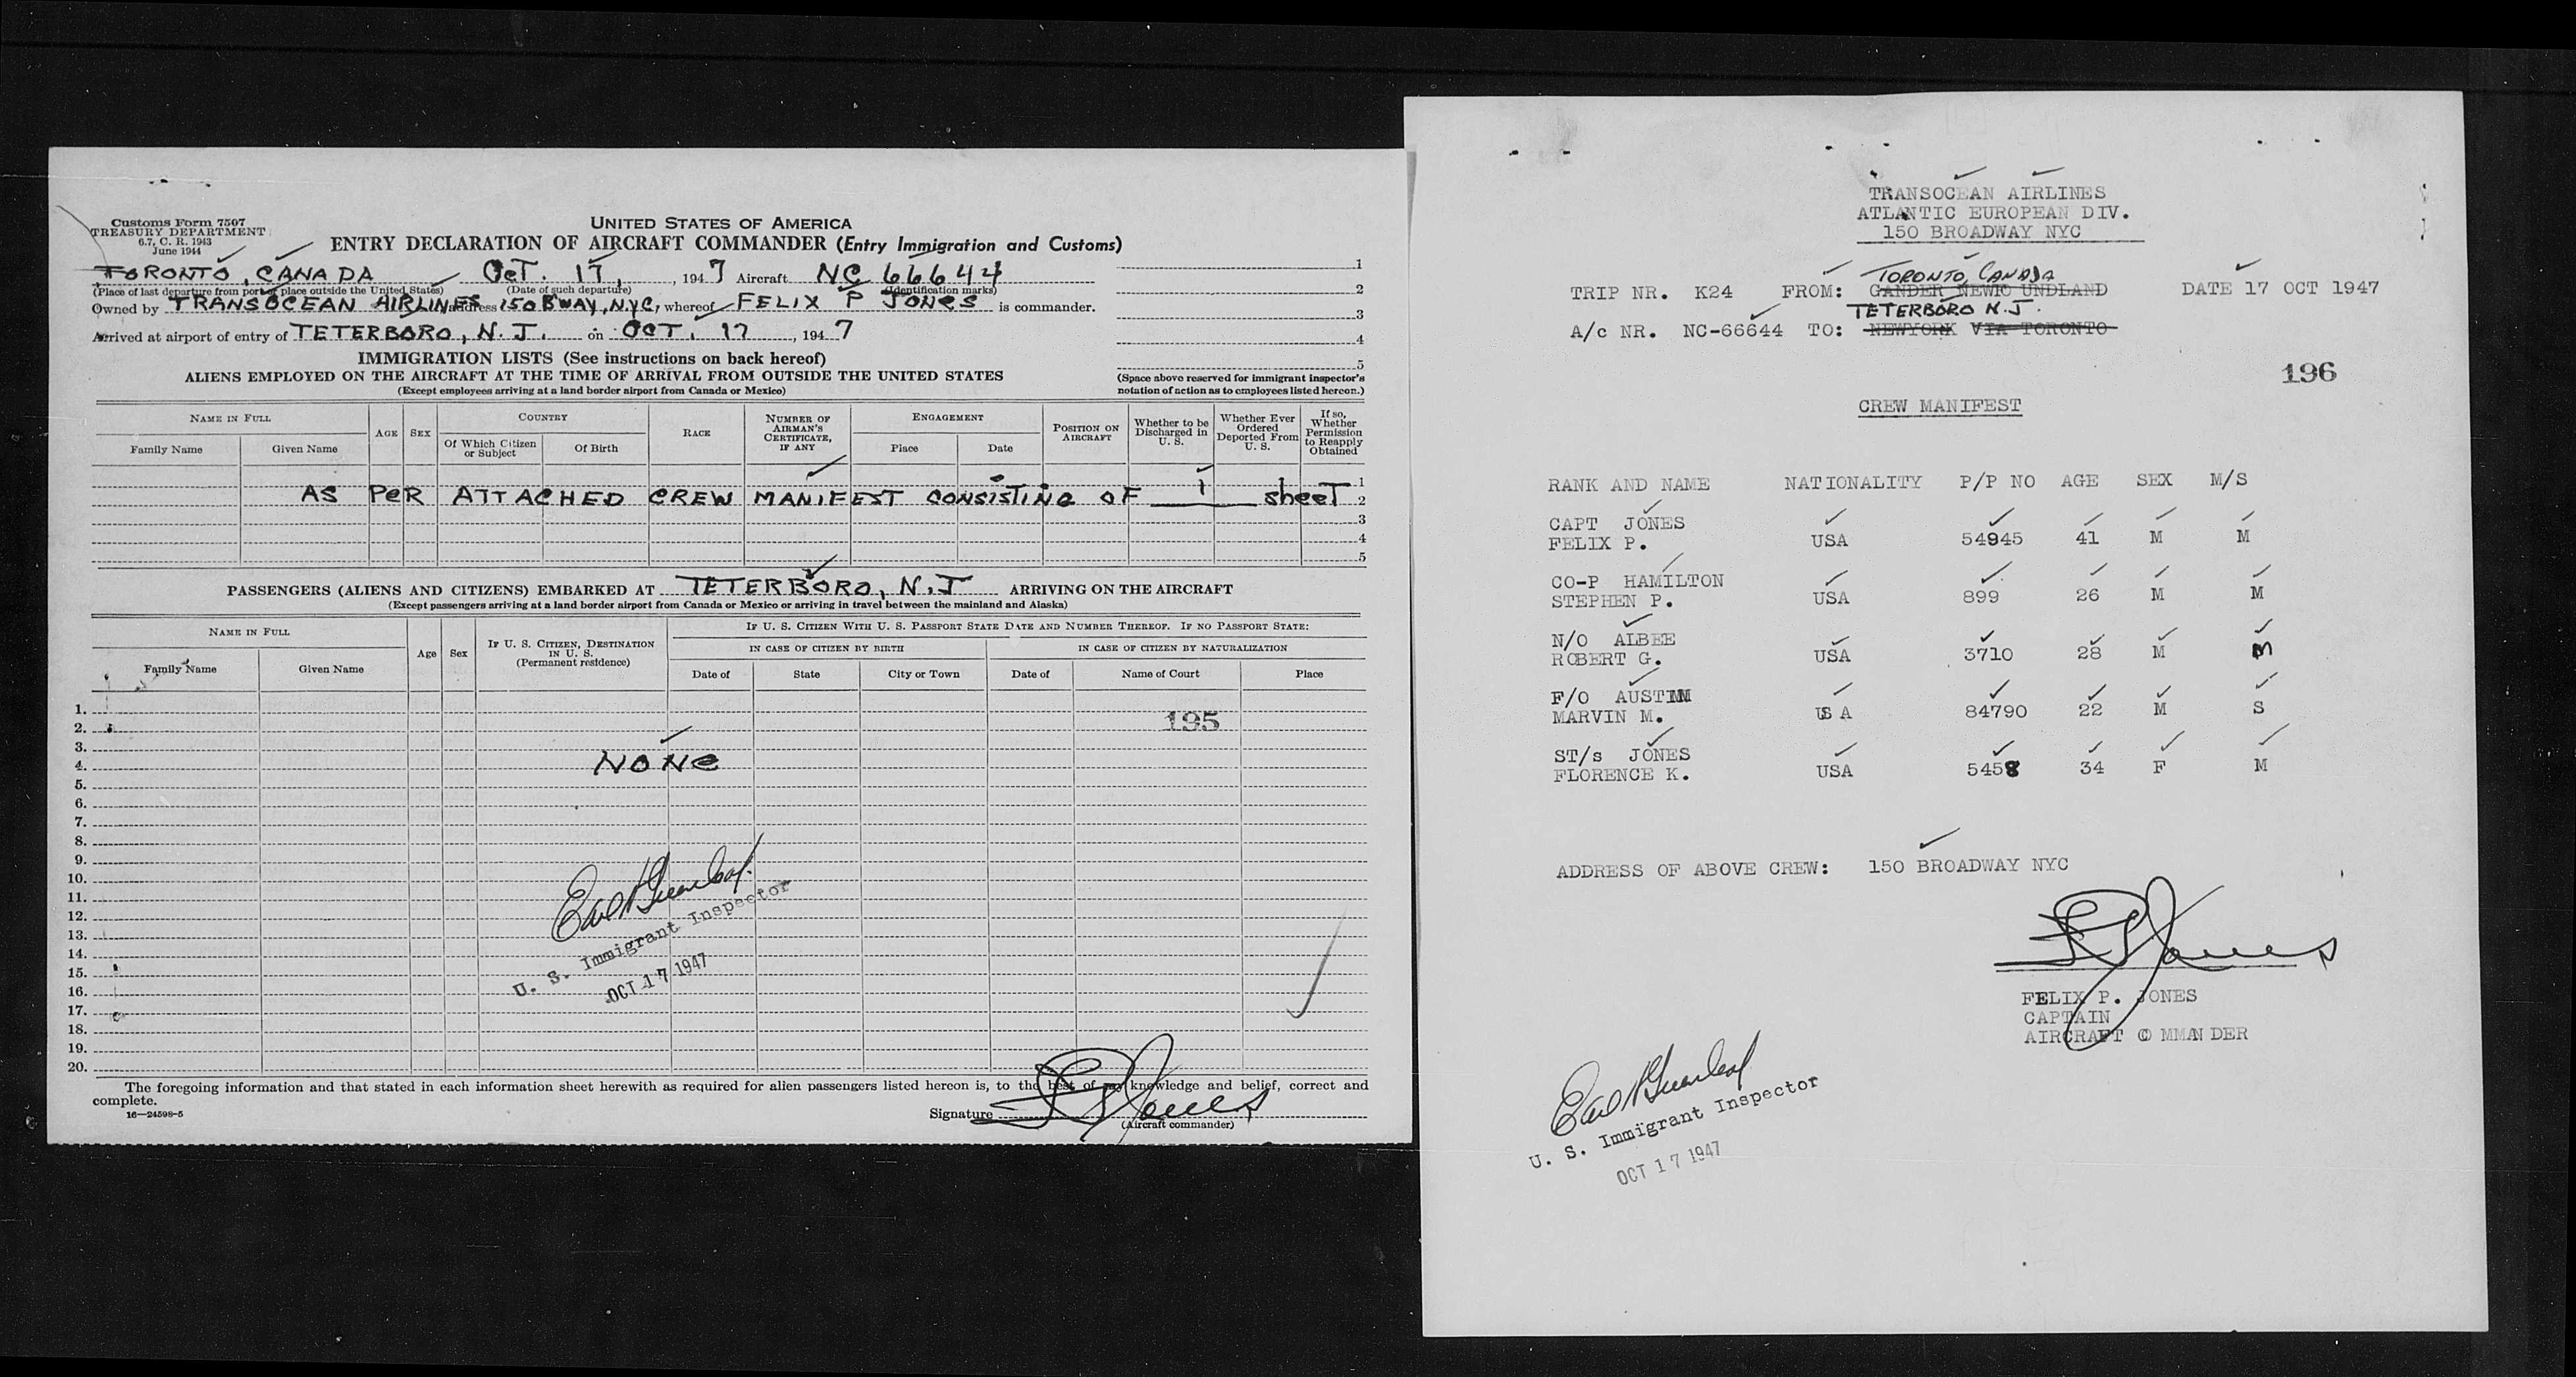 Customs Form 7507
TREASURY DEPARTMENT
6.7, C. R. 1943
June 1944
UNITED STATES OF AMERICA
ENTRY DECLARATION OF AIRCRAFT COMMANDER (Entry Immigration and Customs)
TORONTO, CANADA OCT. 17, , 1947 Aircraft NC 66644
(Place of last departure from port or place outside the United States) (Date of such departure) (Identification marks)
Owned by TRANSOCEAN AIRLINES address 150 B'WAY, N.Y.C., whereof FELIX P JONES is commander.
Arrived at airport of entry of TETERBORO, N.J. on OCT. 17 , 1947
1
2
3
4
5
(Space above reserved for immigrant inspector's
notation of action as to employees listed hereon.)
IMMIGRATION LISTS (See instructions on back hereof)
ALIENS EMPLOYED ON THE AIRCRAFT AT THE TIME OF ARRIVAL FROM OUTSIDE THE UNITED STATES
(Except employees arriving at a land border airport from Canada or Mexico)
NAME IN FULL
Family Name
Given Name
AGE
SEX
COUNTRY
Of Which Citizen
or Subject
Of Birth
RACE
NUMBER OF
AIRMAN'S
CERTIFICATE,
IF ANY
ENGAGEMENT
Place
Date
POSITION ON
AIRCRAFT
Whether to be
Discharged in
U. S.
Whether Ever
Ordered
Deported From
U. S.
If so,
Whether
Permission
to Reapply
Obtained
1
AS PER ATTACHED CREW MANIFEST CONSISTING OF 1 sheet 2
3
4
5
PASSENGERS (ALIENS AND CITIZENS) EMBARKED AT TETERBORO, N.J ARRIVING ON THE AIRCRAFT
(Except passengers arriving at a land border airport from Canada or Mexico or arriving in travel between the mainland and Alaska)
NAME IN FULL
Family Name
Given Name
Age
Sex
IF U. S. CITIZEN, DESTINATION
IN U. S.
(Permanent residence)
IF U. S. CITIZEN WITH U. S. PASSPORT STATE DATE AND NUMBER THEREOF. IF NO PASSPORT STATE:
IN CASE OF CITIZEN BY BIRTH
IN CASE OF CITIZEN BY NATURALIZATION
Date of
State
City or Town
Date of
Name of Court
Place
1.
2. 195
3.
4. NONE
5.
6.
7.
8.
9.
10.
11.
12.
13.
14.
15.
16.
17.
18.
19.
20.
U. S. Immigrant Inspector
OCT 17 1947
The foregoing information and that stated in each information sheet herewith as required for alien passengers listed hereon is, to the best of my knowledge and belief, correct and
complete.
16—24598-5
Signature F P Jones
(Aircraft commander)
TRANSOCEAN AIRLINES
ATLANTIC EUROPEAN DIV.
150 BROADWAY NYC
TORONTO, CANADA
TRIP NR. K24 FROM: GANDER NEWFO UNDLAND DATE 17 OCT 1947
TETERBORO N.J.
A/c NR. NC-66644 TO: NEWYORK VIA TORONTO
196
CREW MANIFEST
RANK AND NAME NATIONALITY P/P NO AGE SEX M/S
CAPT JONES
FELIX P. USA 54945 41 M M
CO-P HAMILTON
STEPHEN P. USA 899 26 M M
N/O ALBEE
ROBERT G. USA 3710 28 M M
F/O AUSTIN
MARVIN M. USA 84790 22 M S
ST/s JONES
FLORENCE K. USA 5458 34 F M
ADDRESS OF ABOVE CREW: 150 BROADWAY NYC
F P Jones
FELIX P. JONES
CAPTAIN
AIRCRAFT COMMANDER
U. S. Immigrant Inspector
OCT 17 1947